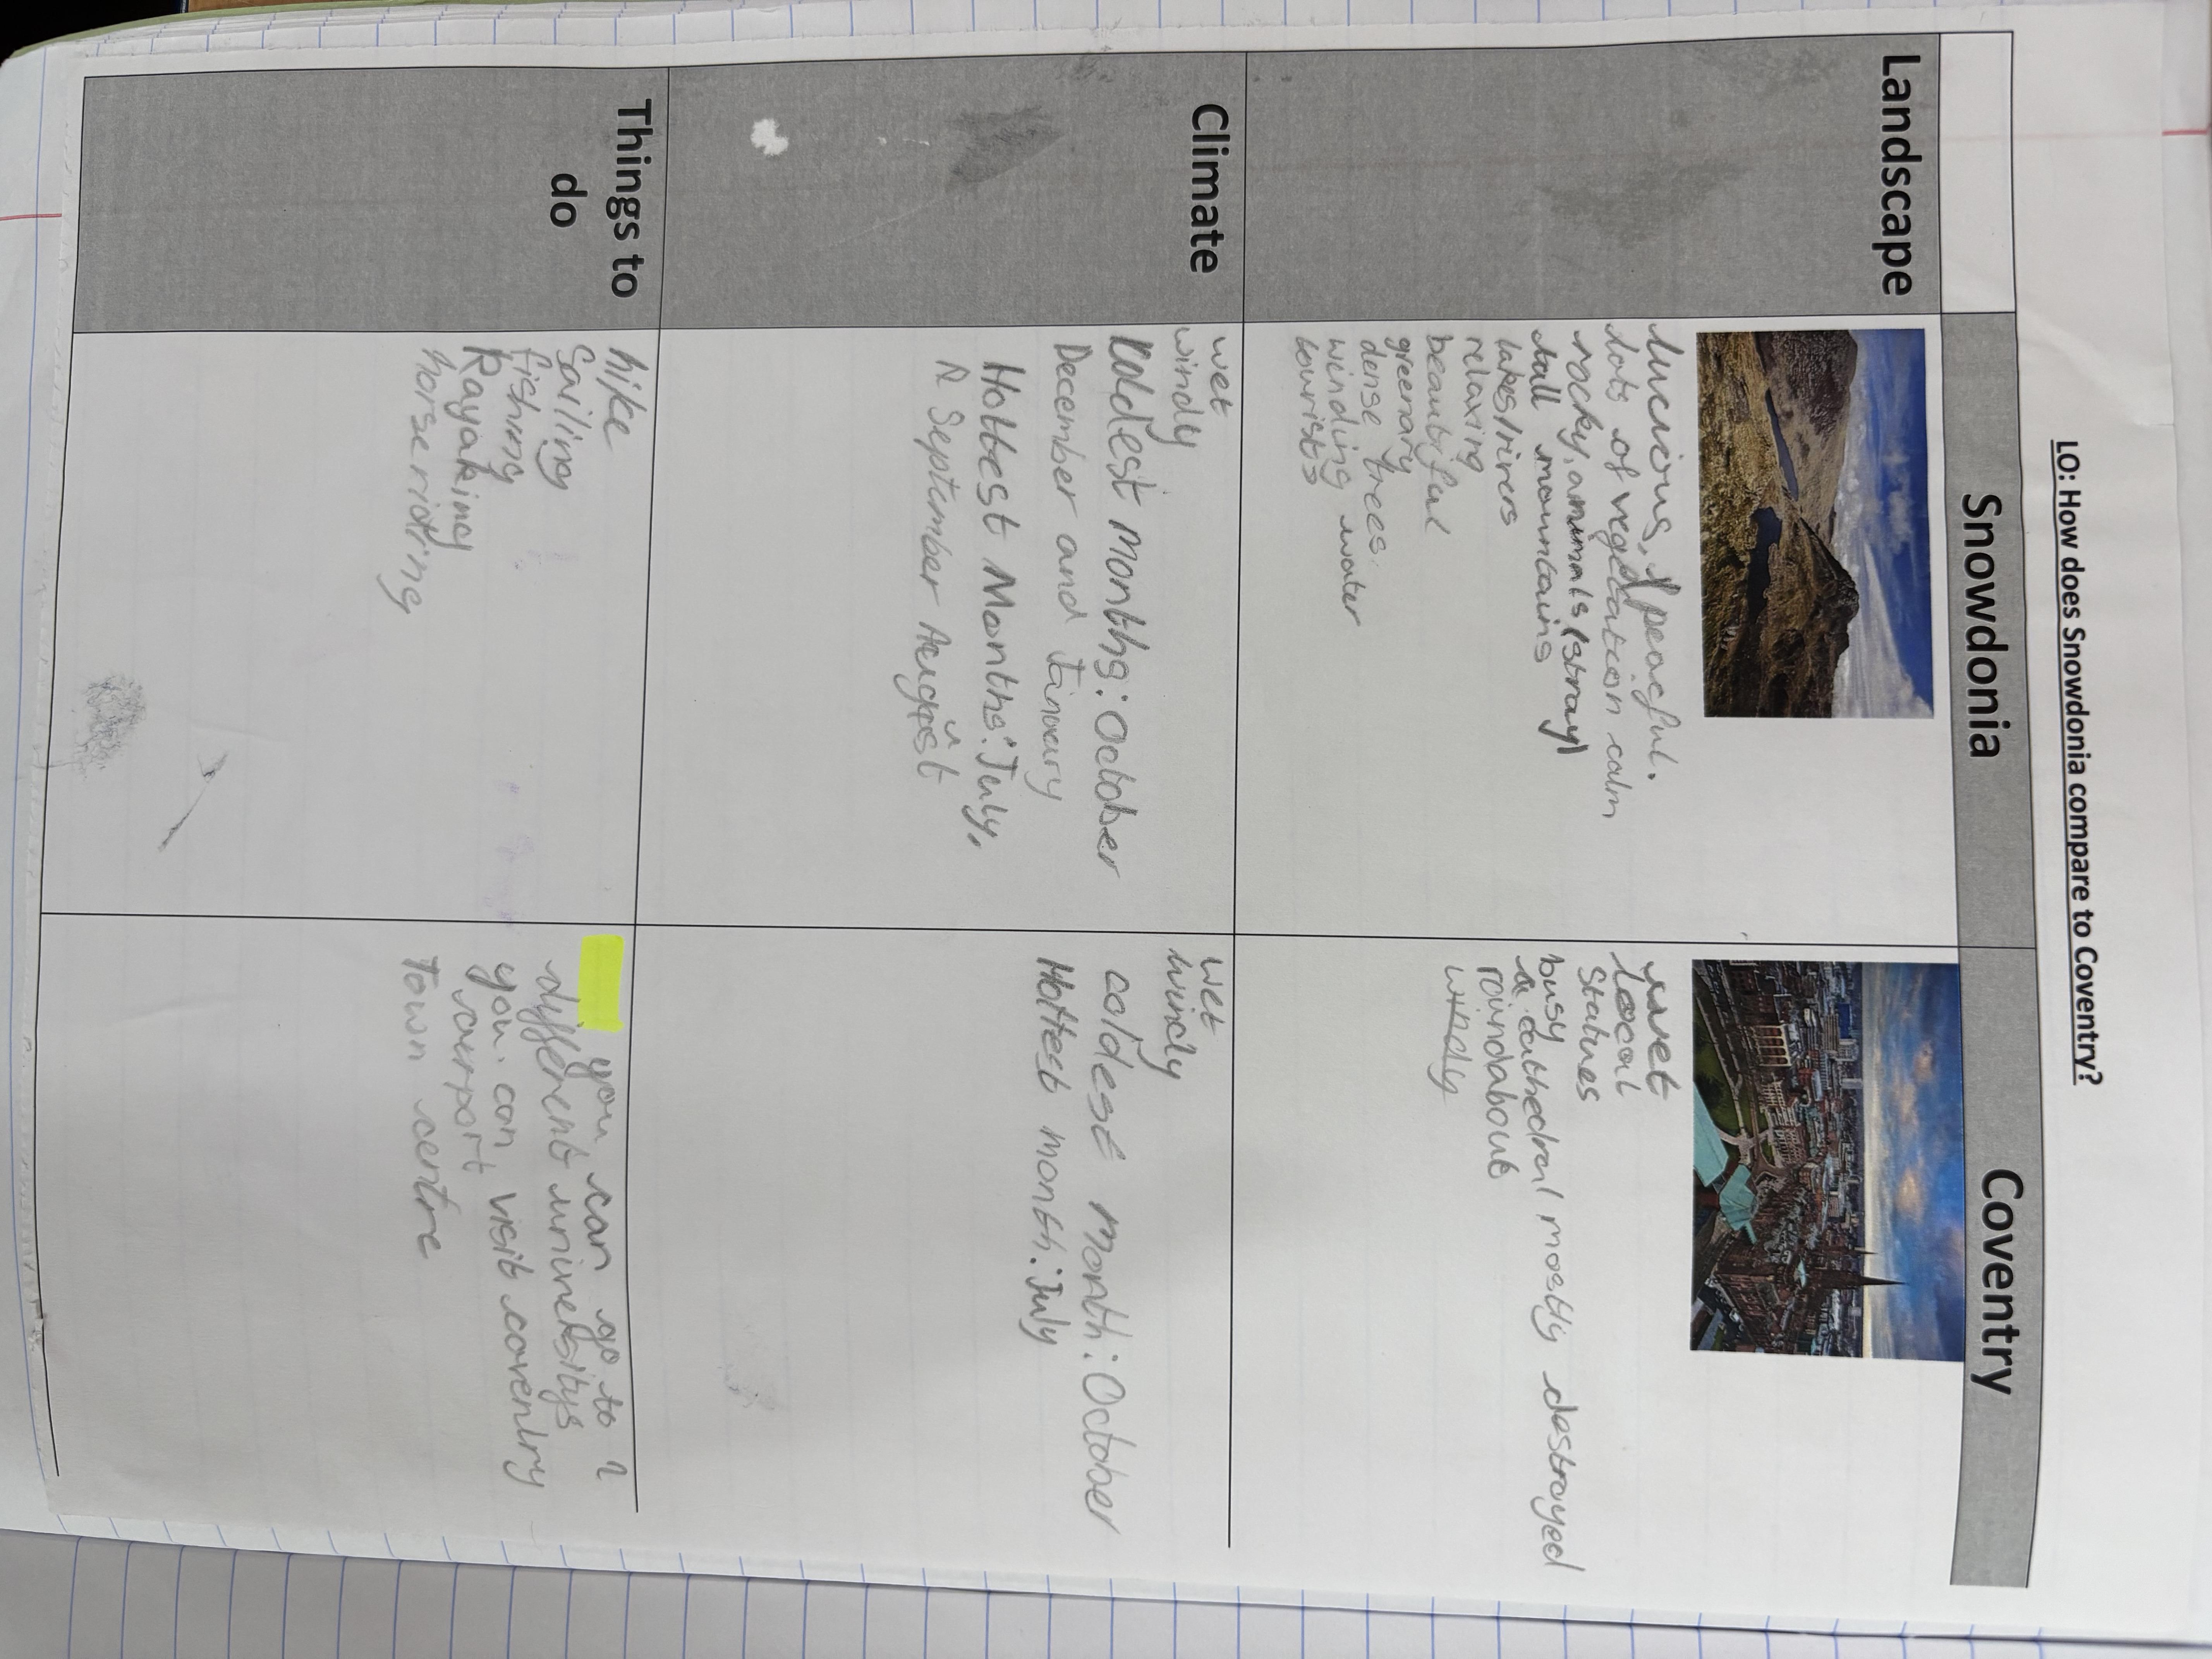 LO: How does Snowdonia compare to Coventry?
Snowdonia
Coventry
Landscape
luscious, peaceful.
lots of vegetation calm
rocky, animals (stray)
tall mountains
lakes/rivers
relaxing
beautyful
greenary
dense trees
winding water
tourists
wet
local
Statues
busy
a cathedral mostly destroyed
roundabout
windy
Climate
wet
windy
Coldest months: October
December and Janurary
Hottest Months: July,
September August
wet
windy
coldest month: October
Hottest month: July
Things to
do
hike
Sailing
fishing
Kayaking
horse riding
you can go to 2
different universitys
you can visit coventry
airport
Town centre